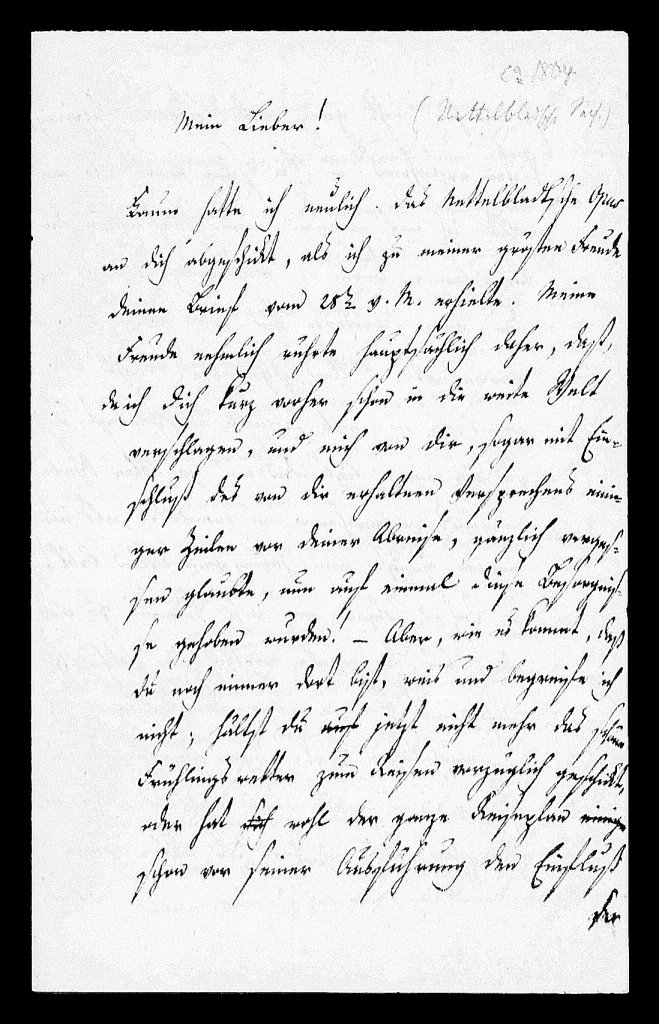 ca 1804
(Nettelbladtsche Sach.)
Mein Lieber!
Kaum hatte ich neulich das Nettelbladtsche Opus
an dich abgeschickt, als ich zu meiner grösten Freude
deinen Brief vom 28ten v. M. erhielte. Meine
Freude nehmlich rührte hauptsächlich daher, daß,
da ich dich kurz vorher schon in die weite Welt
verschlagen, und mich von dir, sogar mit Ein-
schluß des von dir erhaltenen Versprechens eini-
ger Zeilen vor deiner Abreise, gänzlich verges-
sen glaubte, nun auf einmal diese Besorgnis-
se gehoben wurden! – Aber, wie es kommt, daß
du noch immer dort bist, weis und begreiffe ich
nicht; hältst du auf jetzt nicht mehr das schöne
Frühlingswetter zum Reisen vorzüglich geschickt,
oder hat sich wohl der ganze Reiseplan einige
schon vor seiner Ausführung den Einfluß
der